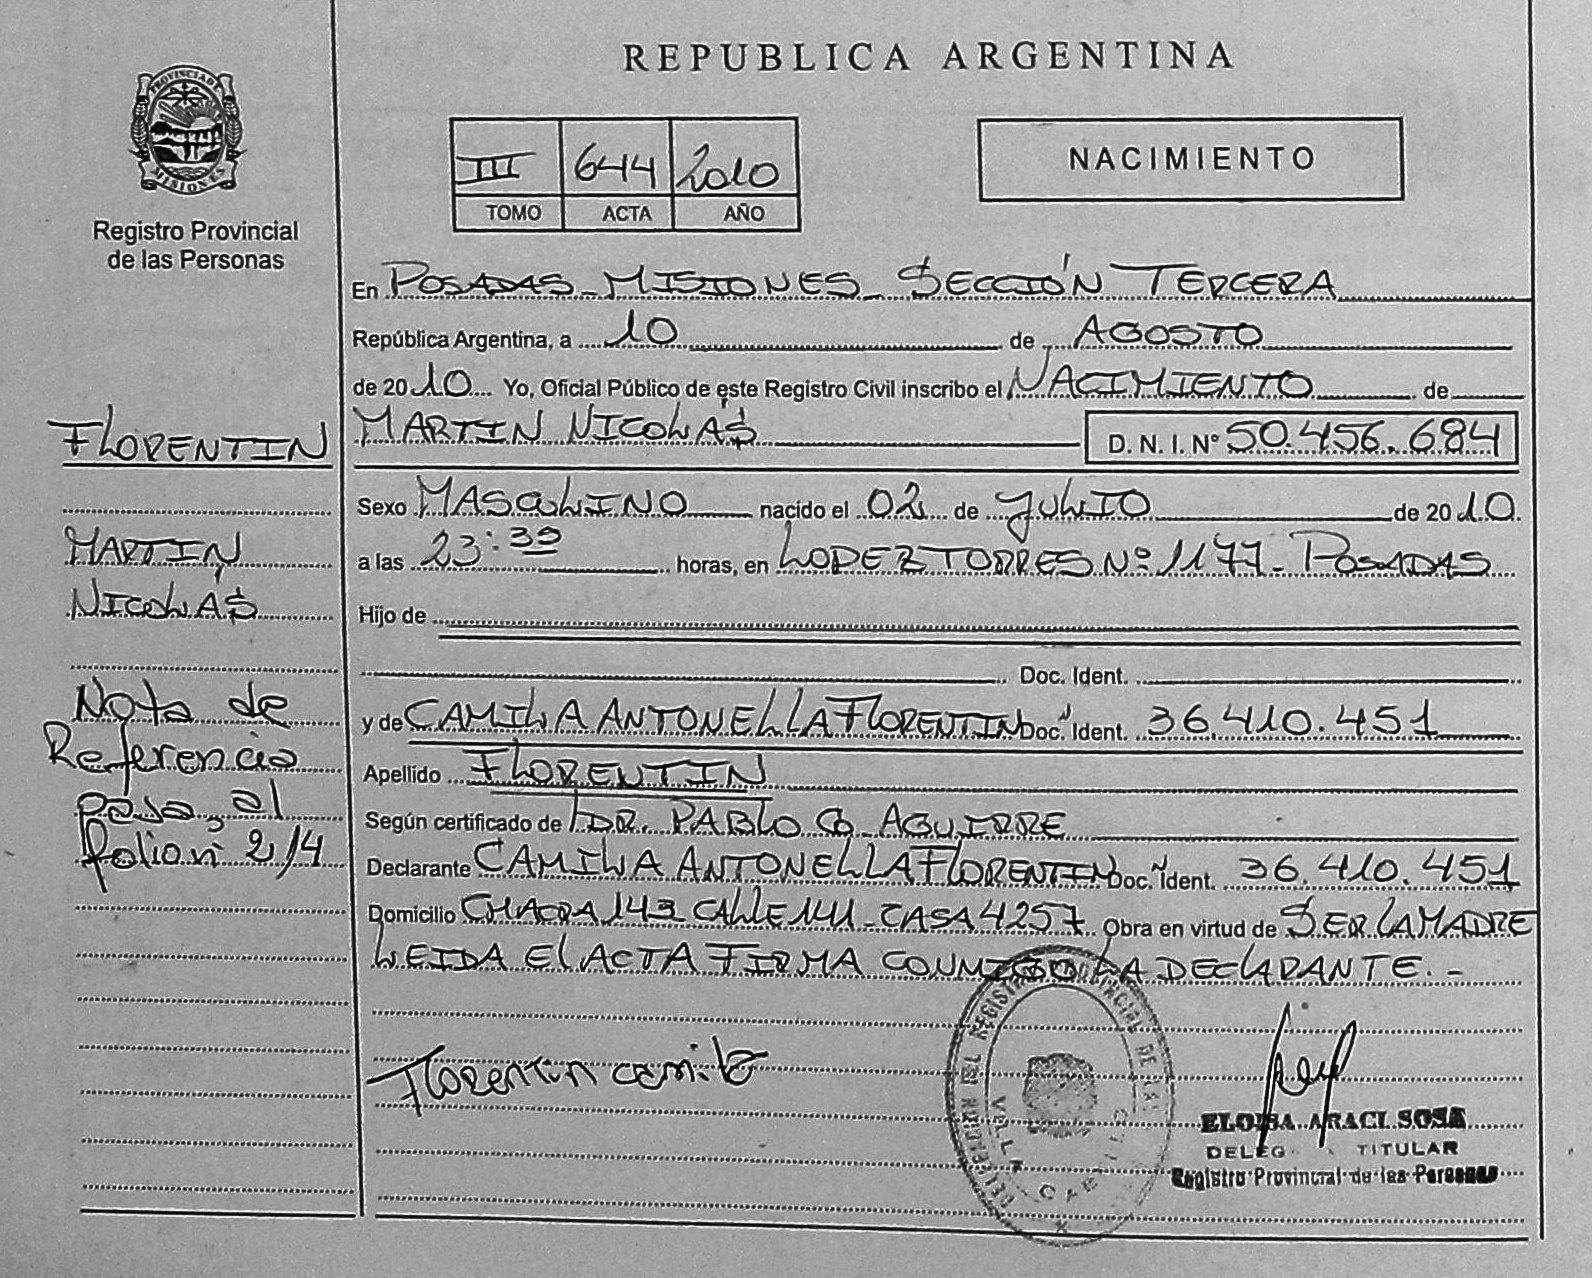 REPUBLICA ARGENTINA
PROVINCIA DE
MISIONES
Registro Provincial
de las Personas
III 644 2010
TOMO ACTA AÑO
NACIMIENTO
En POSADAS_MISIONES_ SECCIÓN TERCERA
República Argentina, a 10 de AGOSTO
de 2010 Yo, Oficial Público de este Registro Civil inscribo el NACIMIENTO de
MARTIN NICOLÁS D. N. I. Nº 50.456.684
FLORENTIN
MARTIN
NICOLÁS
Nota de
Referencia
pasa, al
folion 214
Sexo MASCULINO nacido el 02 de JULIO de 2010.
a las 23:39 horas, en LOPEZ TORRES Nº 1177- POSADAS
Hijo de
Doc. Ident.
y de CAMILA ANTONELLA FLORENTIN Doc. Ident. 36.410.451
Apellido FLORENTIN
Según certificado de DR. PABLO G. AGUIRRE
Declarante CAMILA ANTONELLA FLORENTIN Doc. Ident. 36.410.451
Domicilio CHACRA 143 CALLE 141 - CASA 4257 Obra en virtud de SER LA MADRE
LEIDA EL ACTA FIRMA CONMIGO LA DECLARANTE.-
Florentin Camila
DELEGACION DEL REGISTRO PROVINCIAL DE LAS
VILLA CABELLO
ELOISA ARACI SOSA
DELEG TITULAR
Registro Provincial de las Personas